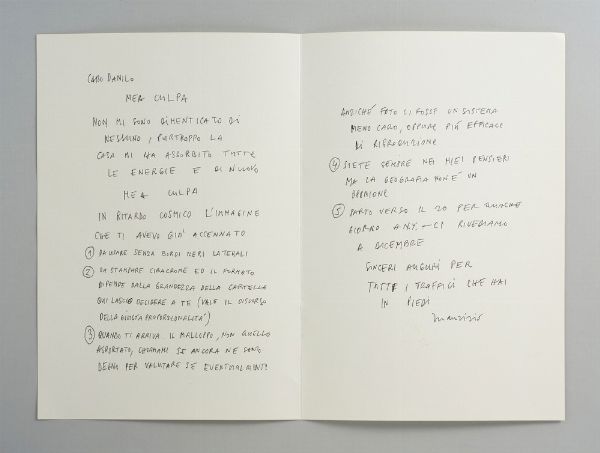 CARO DANILO
MEA CULPA
NON MI SONO DIMENTICATO DI
NESSUNO, PURTROPPO LA
CASA MI HA ASSORBITO TUTTE
LE ENERGIE E DI NUOVO
MEA CULPA
IN RITARDO COSMICO L'IMMAGINE
CHE TI AVEVO GIA' ACCENNATO
1 DA USARE SENZA BORDI NERI LATERALI
2 DA STAMPARE CIBACROME ED IL FORMATO
DIPENDE DALLA GRANDEZZA DELLA CARTELLA
QUI LASCIO DECIDERE A TE (VALE IL DISCORSO
DELLA GIUSTA PROPORZIONALITÀ)
3 QUANDO TI ARRIVA IL MALLOPPO, NON QUELLO
ASPORTATO, CHIAMAMI SE ANCORA NE SONO
DEGNO PER VALUTARE SE EVENTUALMENTE
ANZICHÉ FOTO CI FOSSE UN SISTEMA
MENO CARO, OPPURE PIÚ EFFICACE
DI RIPRODUZIONE
4 SIETE SEMPRE NEI MIEI PENSIERI
MA LA GEOGRAFIA NON É UN
OPINIONE
5 PARTO VERSO IL 20 PER QUALCHE
GIORNO A N.Y. – CI RIVEDIAMO
A DICEMBRE
SINCERI AUGURI PER
TUTTI I TRAFFICI CHE HAI
IN PIEDI
Maurizio